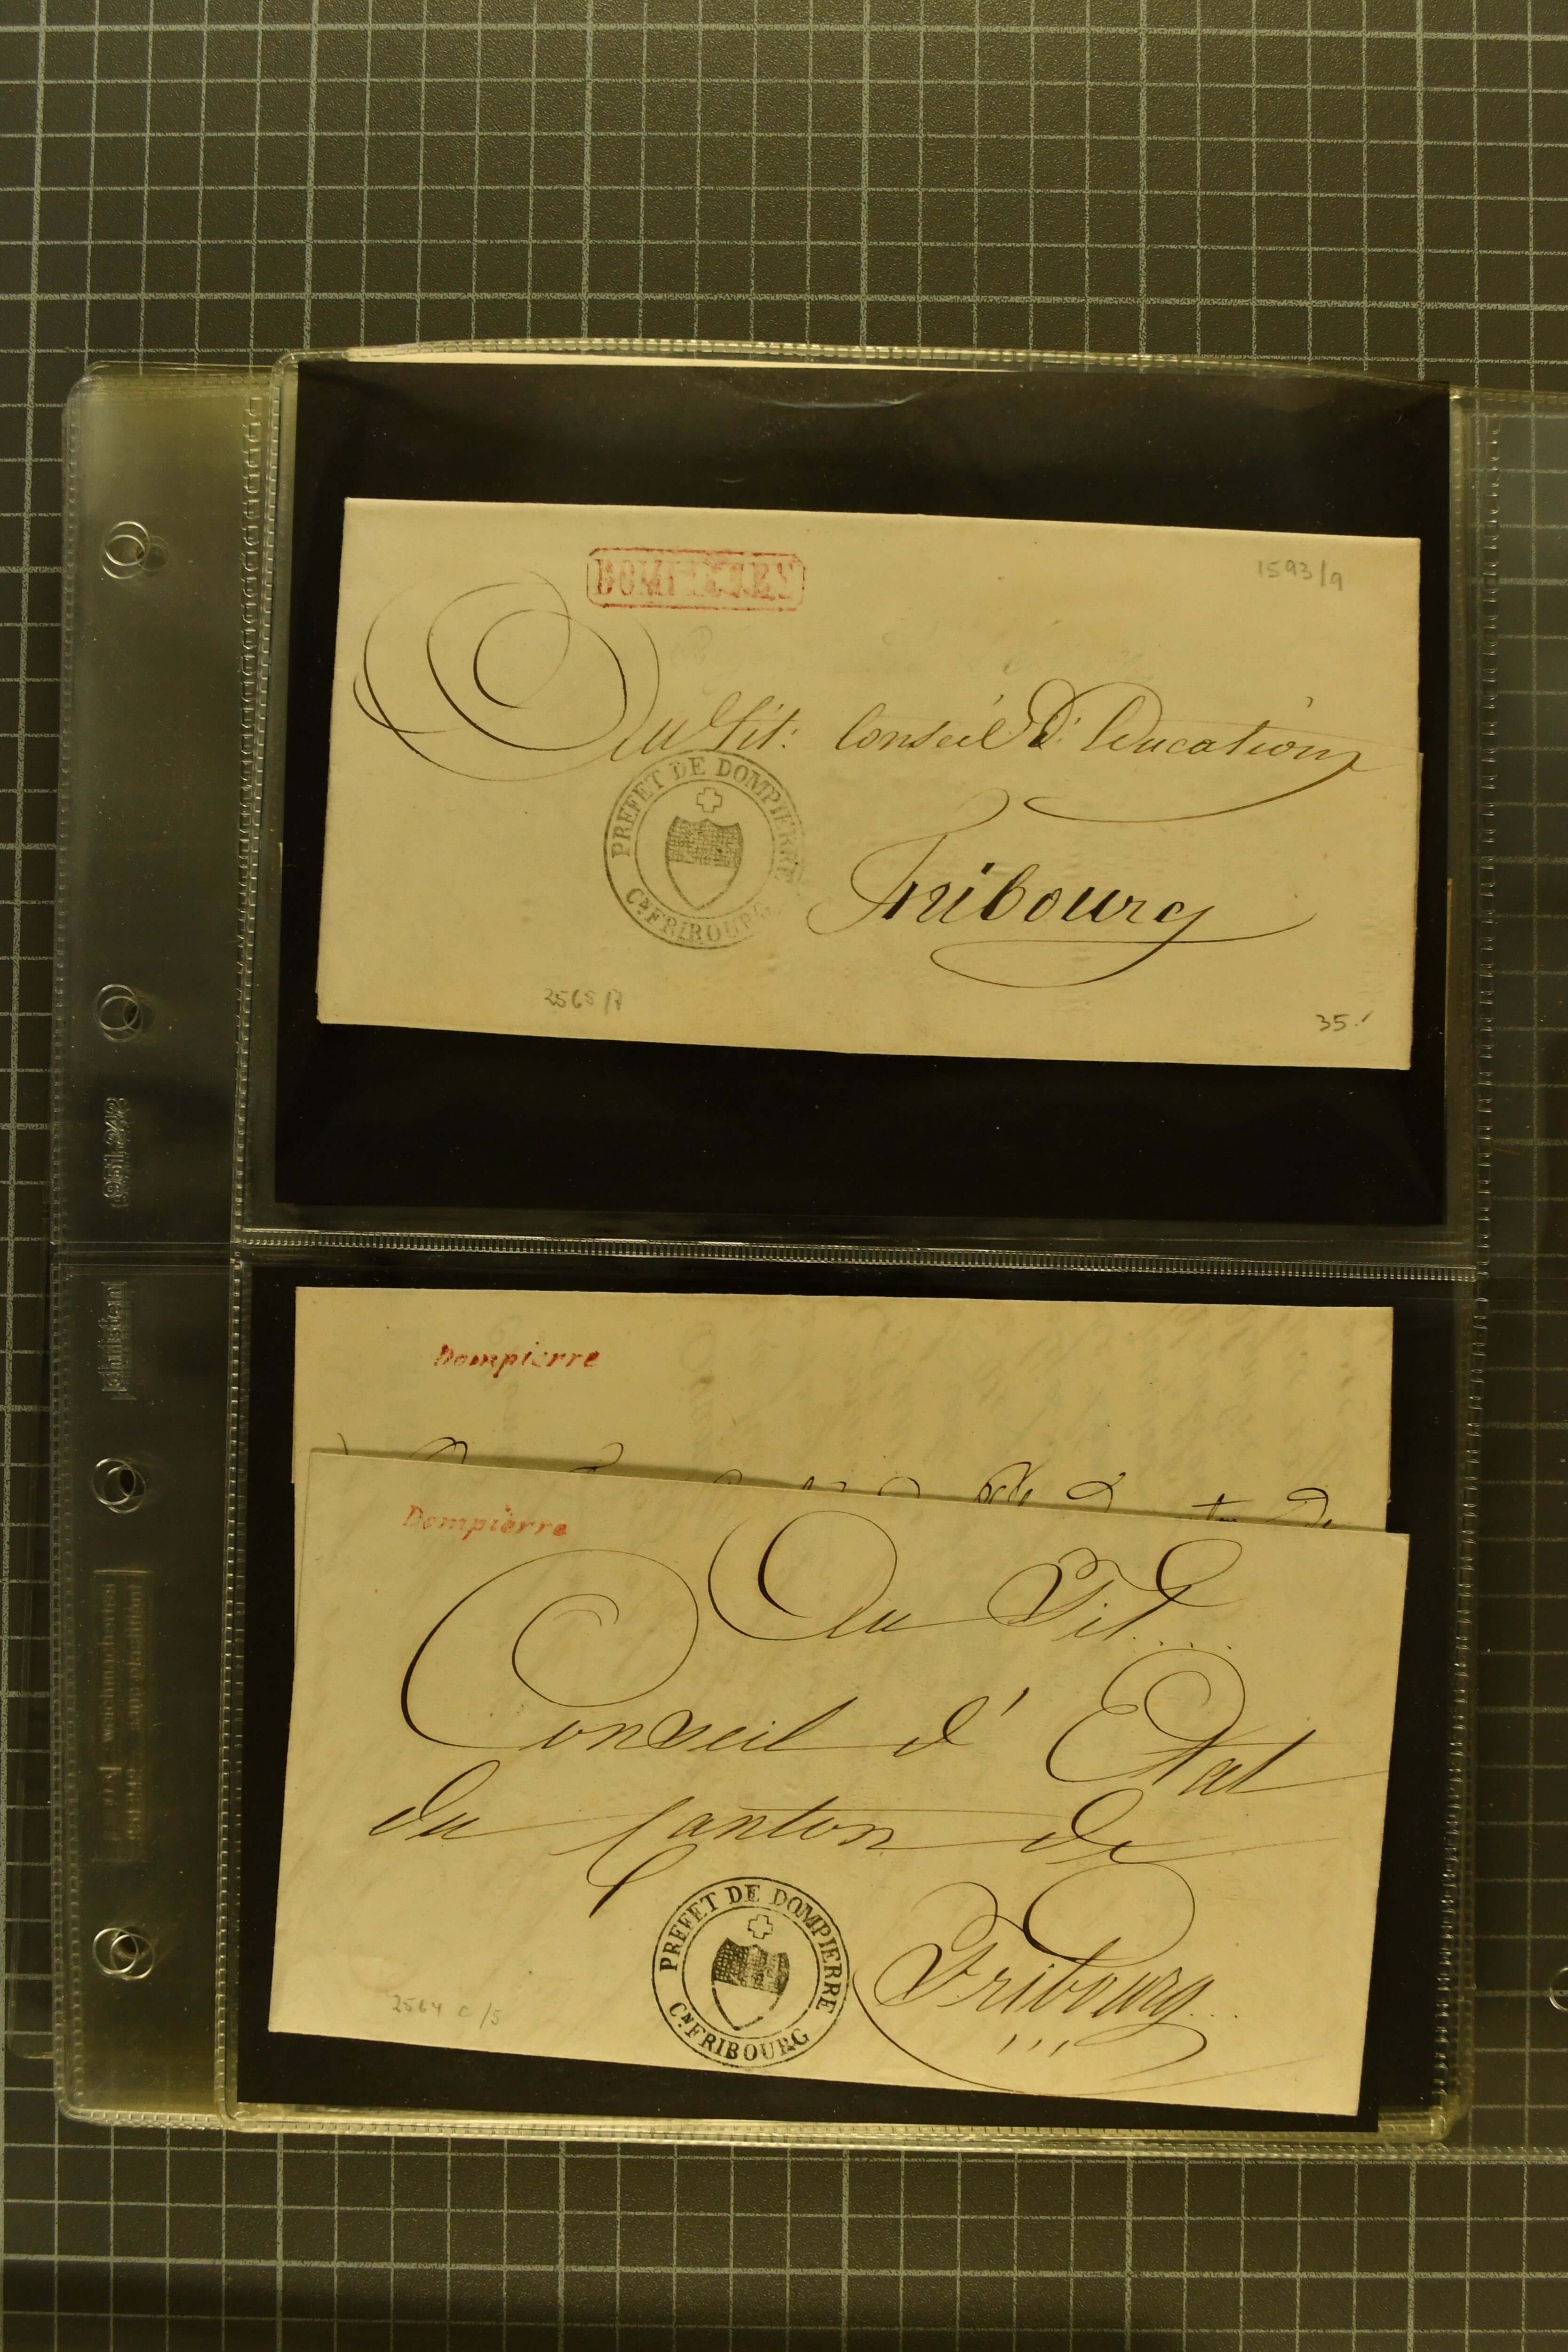 1593/9
Au Tit: Conseil d'Education
PREFET DE DOMPIERRE
Cn. FRIBOURG
Fribourg
2565/7
35.-
Dompierre
Dompierre
Au Tit....
Conseil d'Etat
du Canton de
PREFET DE DOMPIERRE
Cn. FRIBOURG
Fribourg...
2564 c/5